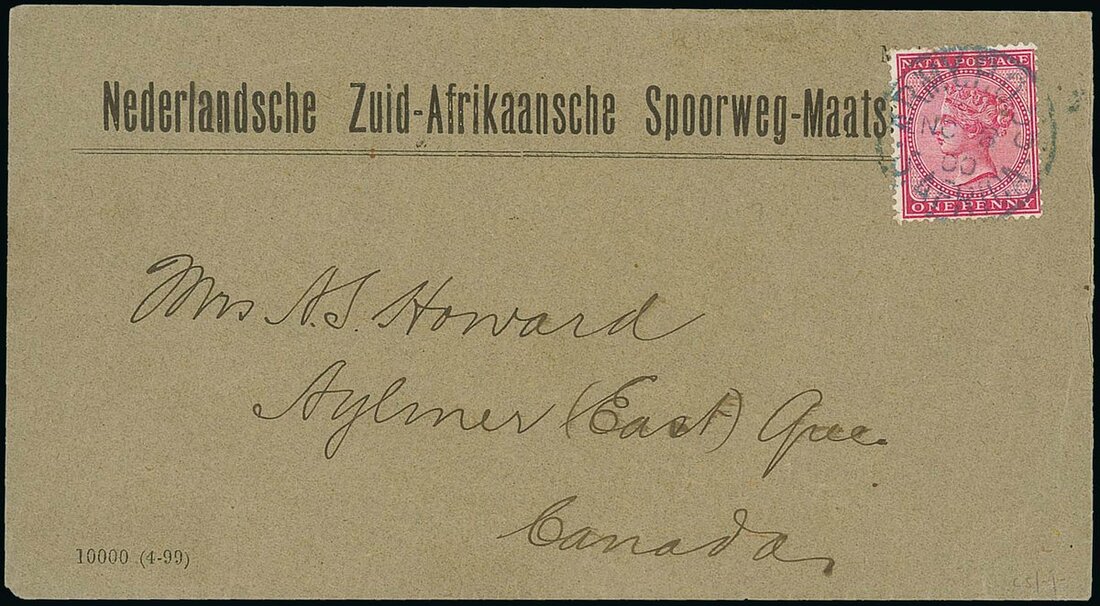 Nederlandsche Zuid-Afrikaansche Spoorweg-Maats
NATAL POSTAGE
ONE PENNY
Mrs A.S. Howard
Aylmer (East) Que.
Canada
10000 (4-99)